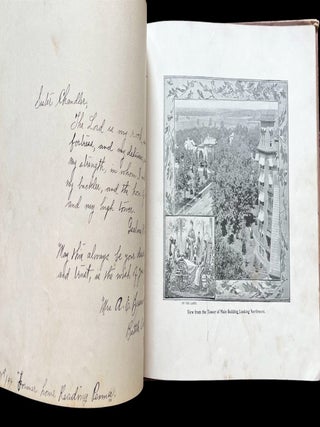 Sister Chandler,
The Lord is my rock,
fortress, and my
my strength, in whom I
my buckler, and the horn
and my high tower.
Psalms
May this always be your
and trust, is the wish of
Mrs A. E.
Battle
Home Reading
ON THE LAWN.
View from the Tower of Main Building, Looking Northwest.